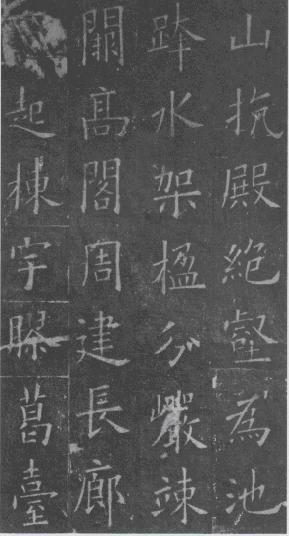 山抗殿絶壑為池
跨水架楹分巖竦
闕髙閣周建長廊
起棟宇膠葛臺